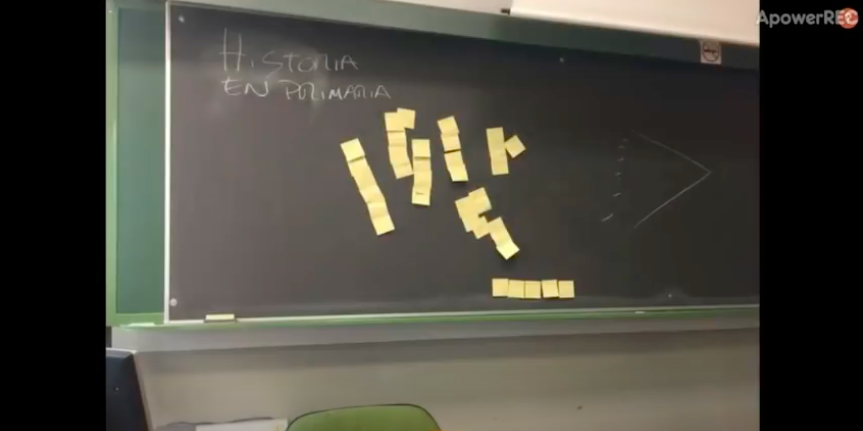 HISTORIA
EN PRIMARIA
ApowerREC